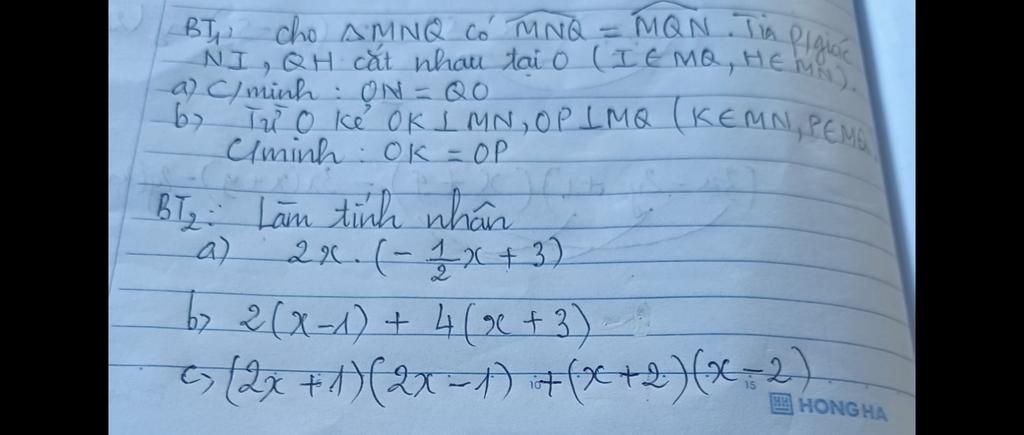 BT1: cho △MNQ có \widehat{MNQ} = \widehat{MQN}. Tia p/giác
NI, QH cắt nhau tại O (I ∈ MQ, H ∈ MN).
a) C/minh: ON = QO
b) Từ O kẻ OK ⊥ MN, OP ⊥ MQ (K ∈ MN, P ∈ MQ
C/minh: OK = OP
BT2: Làm tính nhân
a) 2x. (- 1/2 x + 3)
b) 2(x-1) + 4(x+3)
c) (2x+1)(2x-1) + (x+2)(x-2)
10 15
HONG HA